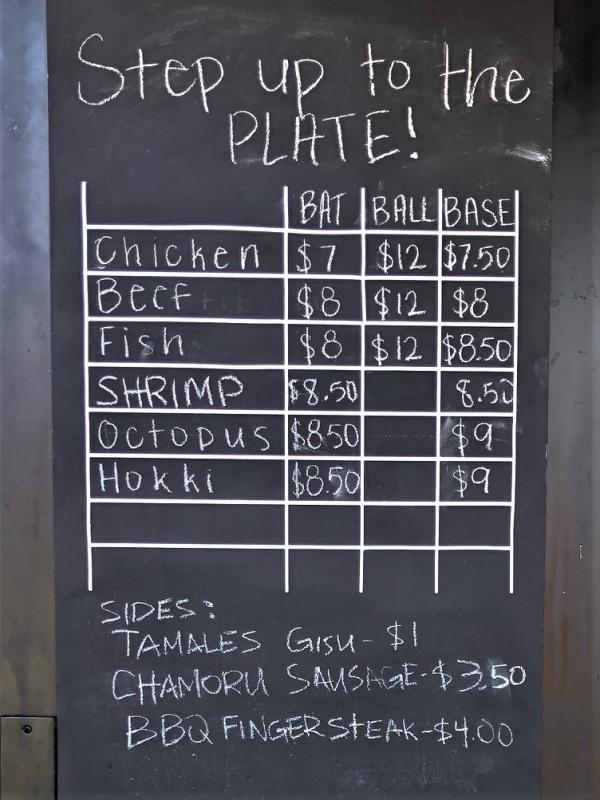 Step up to the
PLATE!
BAT BALL BASE
Chicken $7 $12 $7.50
Beef $8 $12 $8
Fish $8 $12 $8.50
SHRIMP $8.50 8.50
Octopus $850 $9
Hokki $8.50 $9
SIDES:
TAMALES GISU- $1
CHAMORU SAUSAGE-$3.50
BBQ FINGER STEAK-$4.00